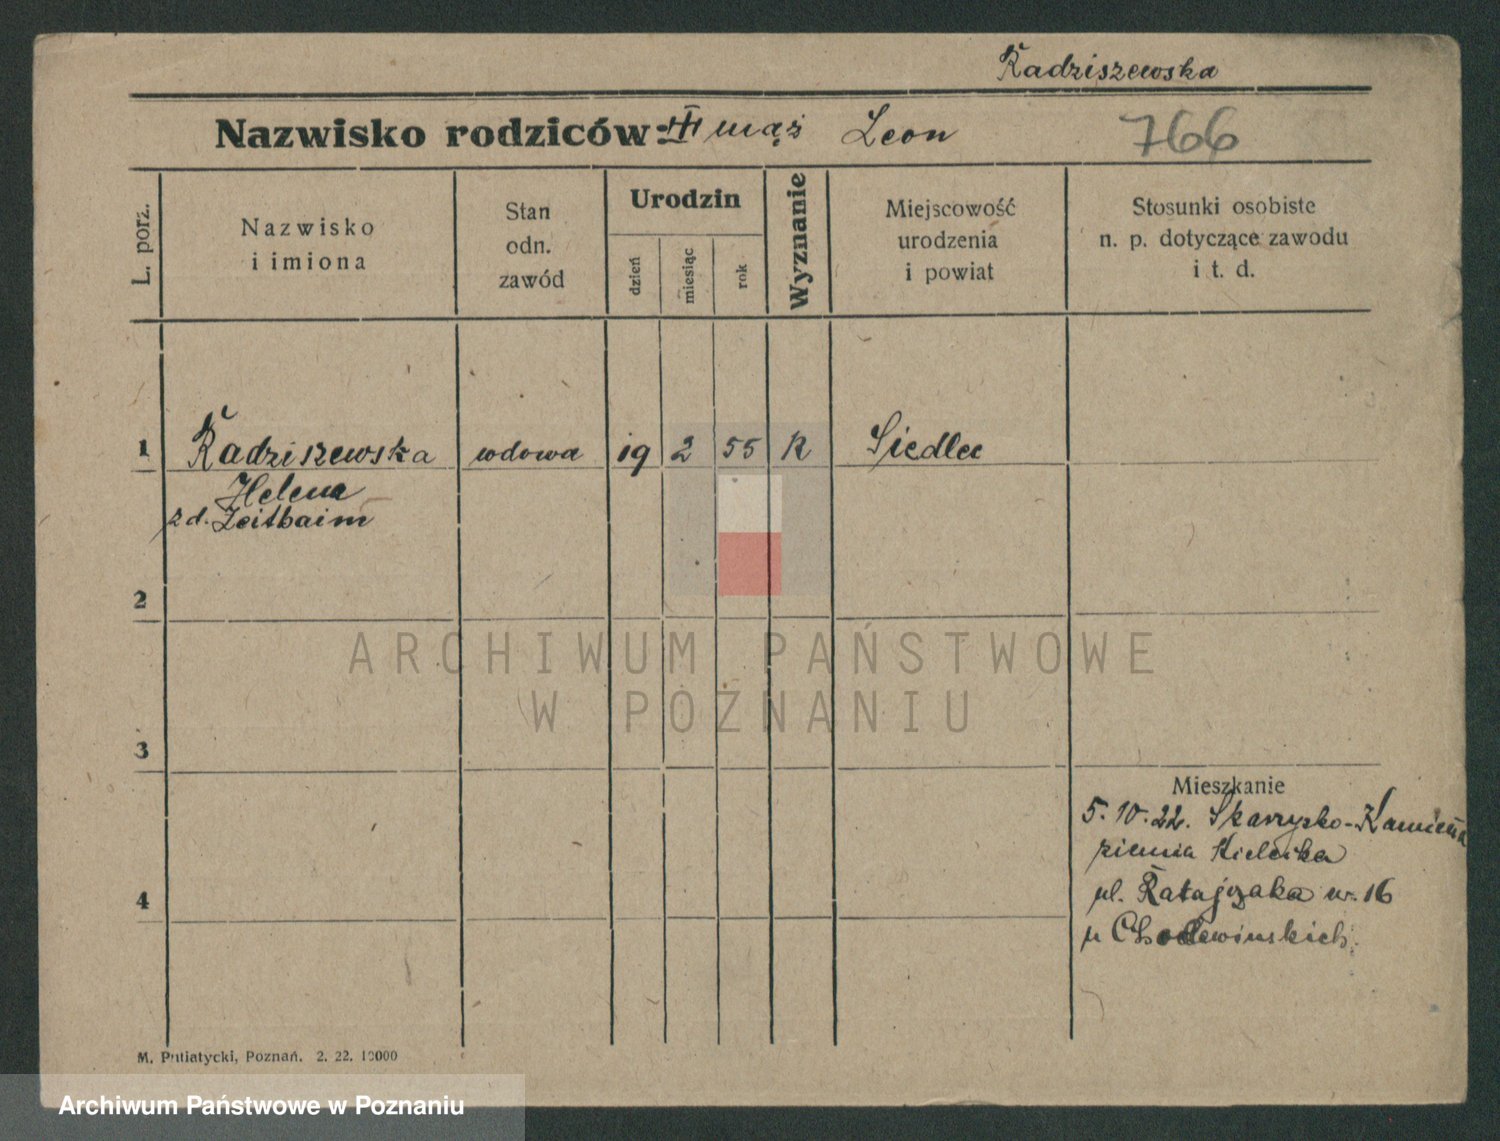 Radziszewska
Nazwisko rodziców: III mąż Leon 766
L. porz.
Nazwisko
i imiona
Stan
odn.
zawód
Urodzin
dzień
miesiąc
rok
Wyznanie
Miejscowość
urodzenia
i powiat
Stosunki osobiste
n. p. dotyczące zawodu
i t. d.
1 Radziszewska wdowa 19 2 55 R Siedlec
Helena
z d. Zeitbaim
2
ARCHIWUM PAŃSTWOWE
W POZNANIU
3
Mieszkanie
5.10.22. Skarzysko-Kamienna
ziemia Kielcska
4
ul. Ratajczaka nr. 16
u
M. Putiatycki, Poznań. 2. 22. 10000
Archiwum Państwowe w Poznaniu